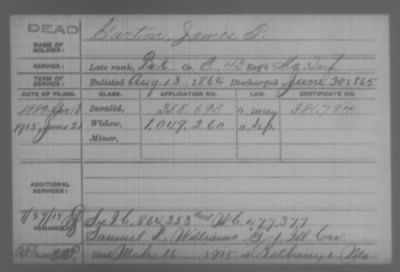 DEAD
NAME OF SOLDIER:
Barton, James P.
SERVICE:
Late rank, Pvt. Co. B, 43 Reg't Mo. Inf
TERM OF SERVICE:
Enlisted Aug 13, 1864 Discharged June 30 1865
DATE OF FILING. CLASS. APPLICATION NO. LAW. CERTIFICATE NO.
Invalid, 358.695 381.794
1915, June 21 Widow, 1.049.260
Minor,
ADDITIONAL SERVICES:
REMARKS:
864.353 W.C. 477.377
Samuel Williams Ill Cav.
Died 16, 1915, at Bethany, Mo.